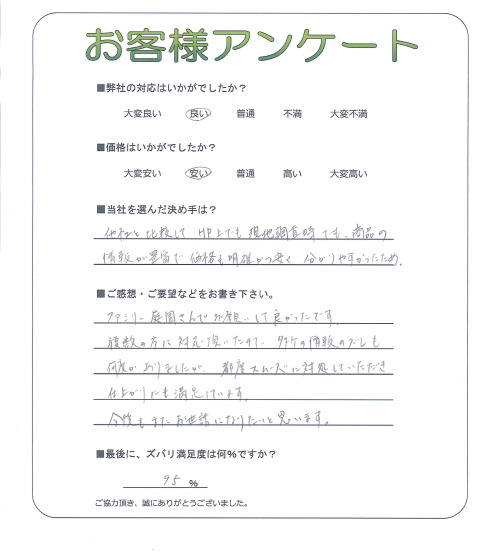 お客様アンケート
■弊社の対応はいかがでしたか？
大変良い 良い 普通 不満 大変不満
■価格はいかがでしたか？
大変安い 安い 普通 高い 大変高い
■当社を選んだ決め手は？
他社と比較して HP上でも現地調査時でも、商品の
情報が豊富で価格も明確かつ安く 分かりやすかったため。
■ご感想・ご要望などをお書き下さい。
ファミリー庭園さんでお願いして良かったです。
複数の方に対応頂いたので、の情報のズレも
何度かありましたが、都度スムーズに対処していただき
仕上がりにも満足しています。
今後もまたお世話になりたいと思います。
■最後に、ズバリ満足度は何%ですか？
95 %
ご協力頂き、誠にありがとうございました。